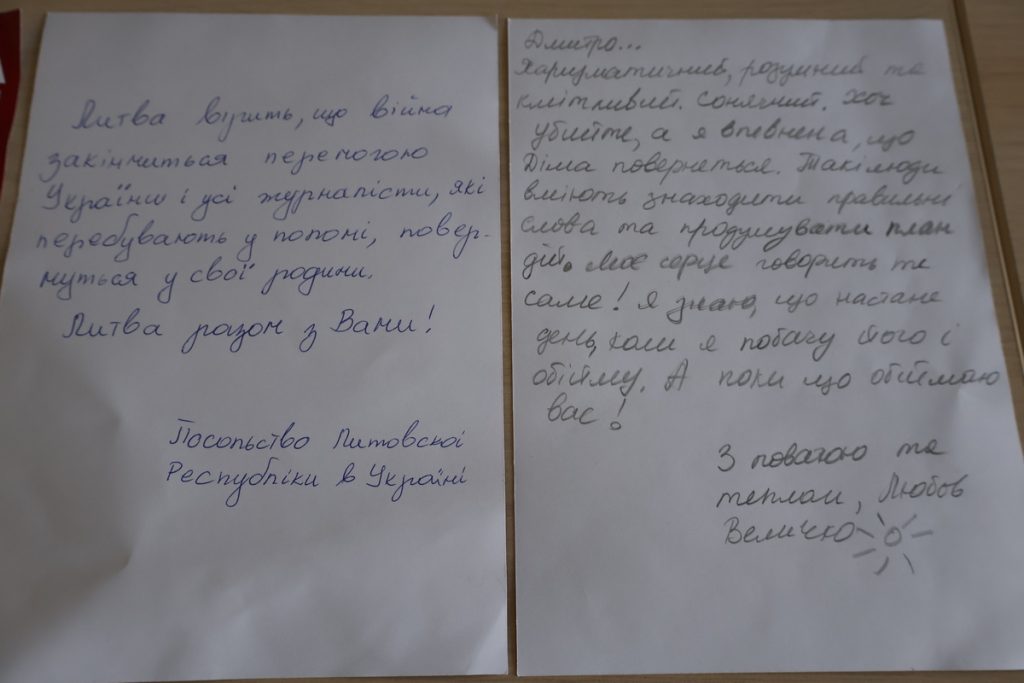 Литва вірить, що війна
закінчиться перемогою
України і усі журналісти, які
перебувають у полоні, повер-
нуться у свої родини.
Литва разом з Вами!
Посольство Литовської
Республіки в Україні
Дмитро...
Харизматичний, розумний та
кмітливий. Сонячний. Хоч
убийте, а я впевнена, що
Діма повернеться. Такі люди
вміють знаходити правильні
слова та продумувати план
дій. Моє серце говорить те
саме! Я знаю, що настане
день, коли я побачу його і
обійму. А поки що обіймаю
вас!
З повагою та
теплом, Любов
Величко